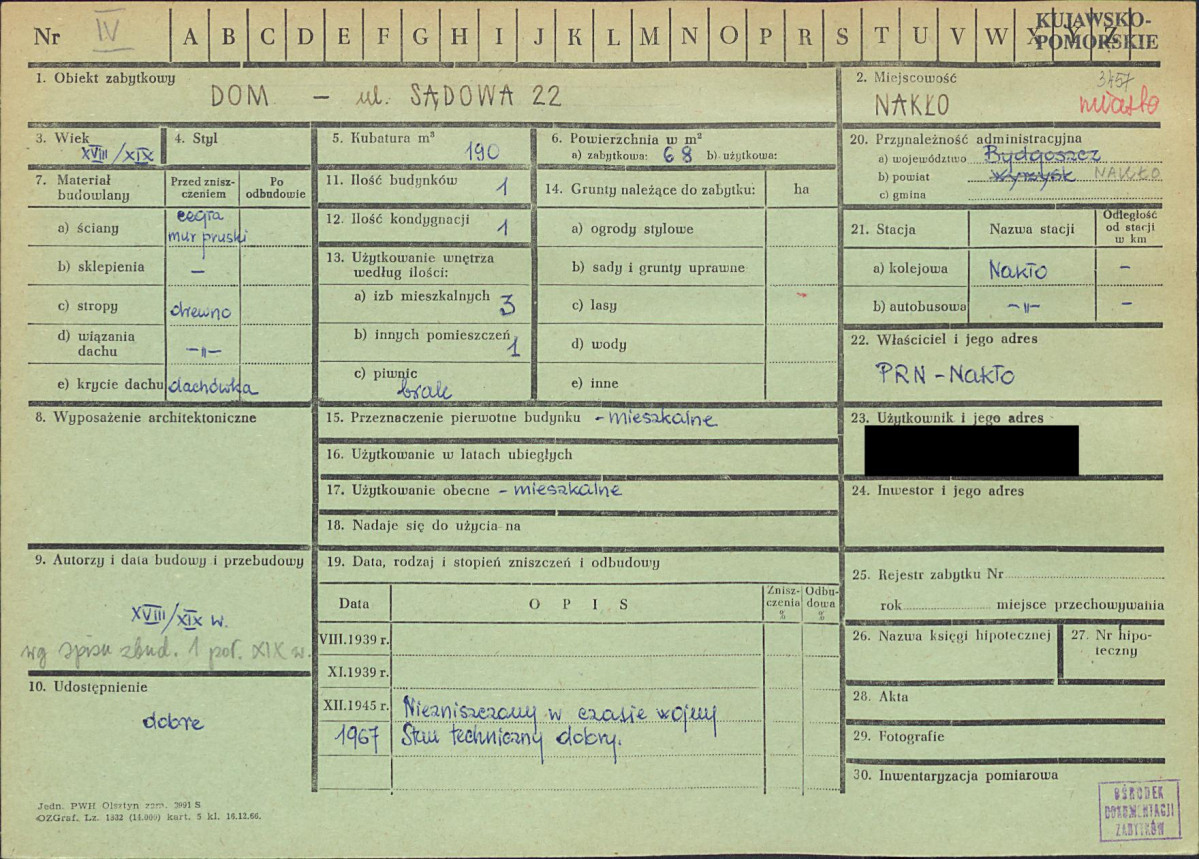 Nr IV A B C D E F G H I J K L M N O P R S T U V W X Y Z
KUJAWSKO-
POMORSKIE
1. Obiekt zabytkowy
DOM – ul. SĄDOWA 22
2. Miejscowość
3457
NAKŁO miasto
3. Wiek
XVIII/XIX
4. Styl
5. Kubatura m³
190
6. Powierzchnia w m²
a) zabytkowa: 68 b) użytkowa:
20. Przynależność administracyjna
a) województwo Bydgoszcz
b) powiat Wyrzysk NAKŁO
c) gmina
7. Materiał
budowlany
Przed znisz-
czeniem
Po
odbudowie
a) ściany
cegła
mur pruski
b) sklepienia –
c) stropy drewno
d) wiązania
dachu –"–
e) krycie dachu dachówka
11. Ilość budynków 1
12. Ilość kondygnacji 1
13. Użytkowanie wnętrza
według ilości:
a) izb mieszkalnych 3
b) innych pomieszczeń 1
c) piwnic
brak
14. Grunty należące do zabytku: ha
a) ogrody stylowe
b) sady i grunty uprawne
c) lasy
d) wody
e) inne
21. Stacja
Nazwa stacji
Odległość
od stacji
w km
a) kolejowa Nakło –
b) autobusowa –"– –
22. Właściciel i jego adres
PRN – Nakło
8. Wyposażenie architektoniczne
15. Przeznaczenie pierwotne budynku – mieszkalne
16. Użytkowanie w latach ubiegłych
17. Użytkowanie obecne – mieszkalne
18. Nadaje się do użycia na
23. Użytkownik i jego adres
24. Inwestor i jego adres
9. Autorzy i data budowy i przebudowy
XVIII/XIX w.
wg spisu zbud. 1 poł. XIX w.
10. Udostępnienie
dobre
19. Data, rodzaj i stopień zniszczeń i odbudowy
Data
OPIS
Znisz-
czenia
%
Odbu-
dowa
%
VIII.1939 r.
XI.1939 r.
XII.1945 r. Niezniszczony w czasie wojny
1967 Stan techniczny dobry.
25. Rejestr zabytku Nr
rok miejsce przechowywania
26. Nazwa księgi hipotecznej
27. Nr hipo-
teczny
28. Akta
29. Fotografie
30. Inwentaryzacja pomiarowa
Jedn. PWH Olsztyn zam. 3991 S
OZGraf. Lz. 1332 (14.000) kart. 5 kl. 16.12.66.
OŚRODEK
DOKUMENTACJI
ZABYTKÓW